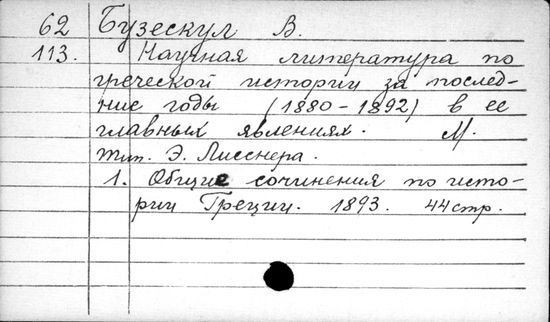 62 Бузескул В.
113. Научная литература по
греческой истории за послед-
ние годы (1880-1892) в ее
главных явлениях. М.
тип. Э. Лисснера.
1. Общие сочинения по исто-
рии Греции. 1893. 44 стр.